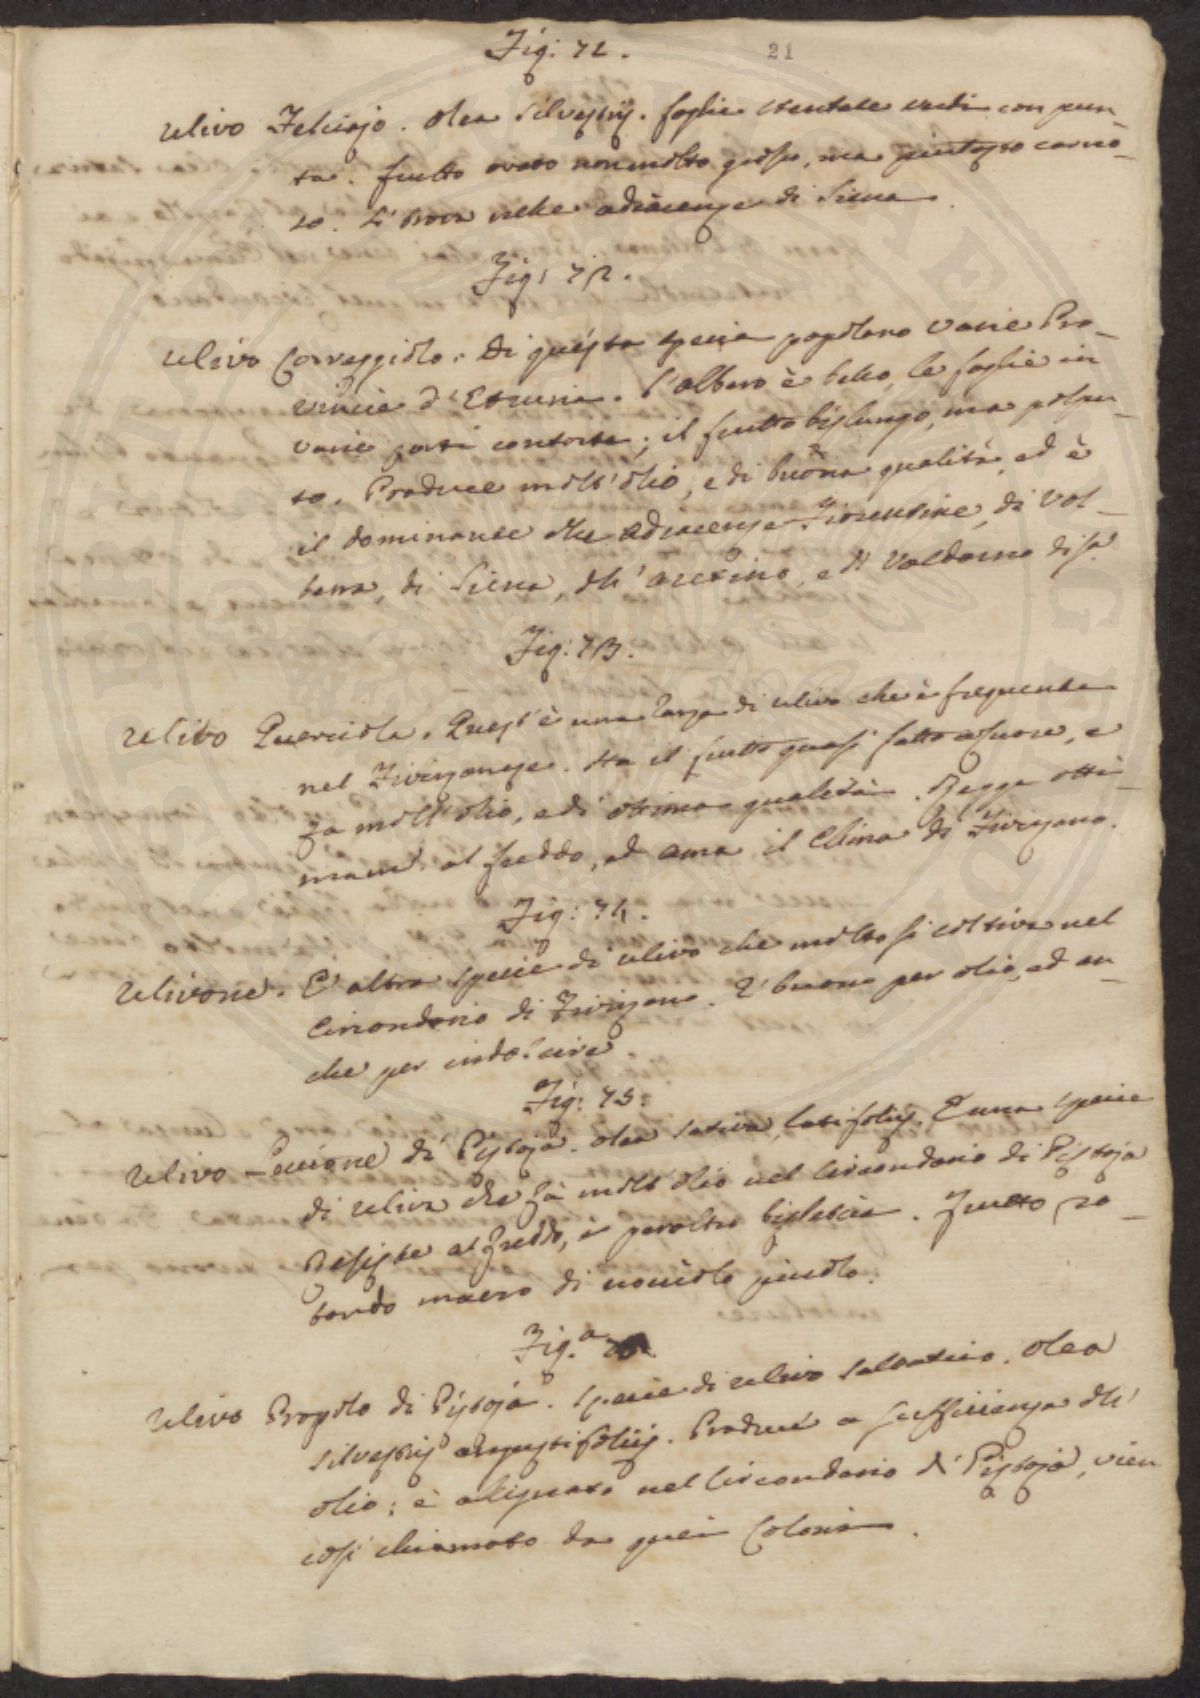 Fig. 71.
21
Ulivo Felciajo. Olea Silvestris. foglie stentate verdi con pun-
ta. frutto ovato non molto grosso, ma piuttosto carno-
so. Si trova nelle adiacenze di Siena.
Fig. 72.
Ulivo Correggiolo. Di questa specie popolano varie Pro-
vincie d'Etruria. l'albero è bello, le foglie in
varie parti contorte; il frutto bislungo, ma polpu-
to. Produce molt'olio, e di buona qualità, ed è
il dominante nelle adiacenze Fiorentine, di Vol-
terra, di Siena, dell'aretino, e di Valdarno
Fig. 73.
Ulivo Querciola. Quest'è una razza di ulivo che è frequente
nel Fivizzanese. Ha il frutto quasi fatto a cuore, e
fa molt'olio, e di ottima qualità. Regge otti-
mam. al freddo, ed ama il Clima di Fivizzano.
Fig. 74.
Ulivone. E' altra specie di ulivo che molto si coltiva nel
Circondario di Fivizzano. E' buono per olio, ed an-
che per indolcire.
Fig. 75.
Ulivo Leccione di Pistoja. Olea sativa, latifolis. E' una specie
di uliva che fà molt'olio nel Circondario di Pistoja
Resiste al freddo, è peraltro bislacia. Frutto ro-
tondo macro di nocciolo piccolo.
Fig.a
Ulivo Brogiolo di Pistoja. Specie di ulivo salvatico. Olea
silvestris angustifolis. Produce a sufficienza dell'
olio; è alignato nel Circondario di Pistoja, vien
così chiamato da quei Coloni.